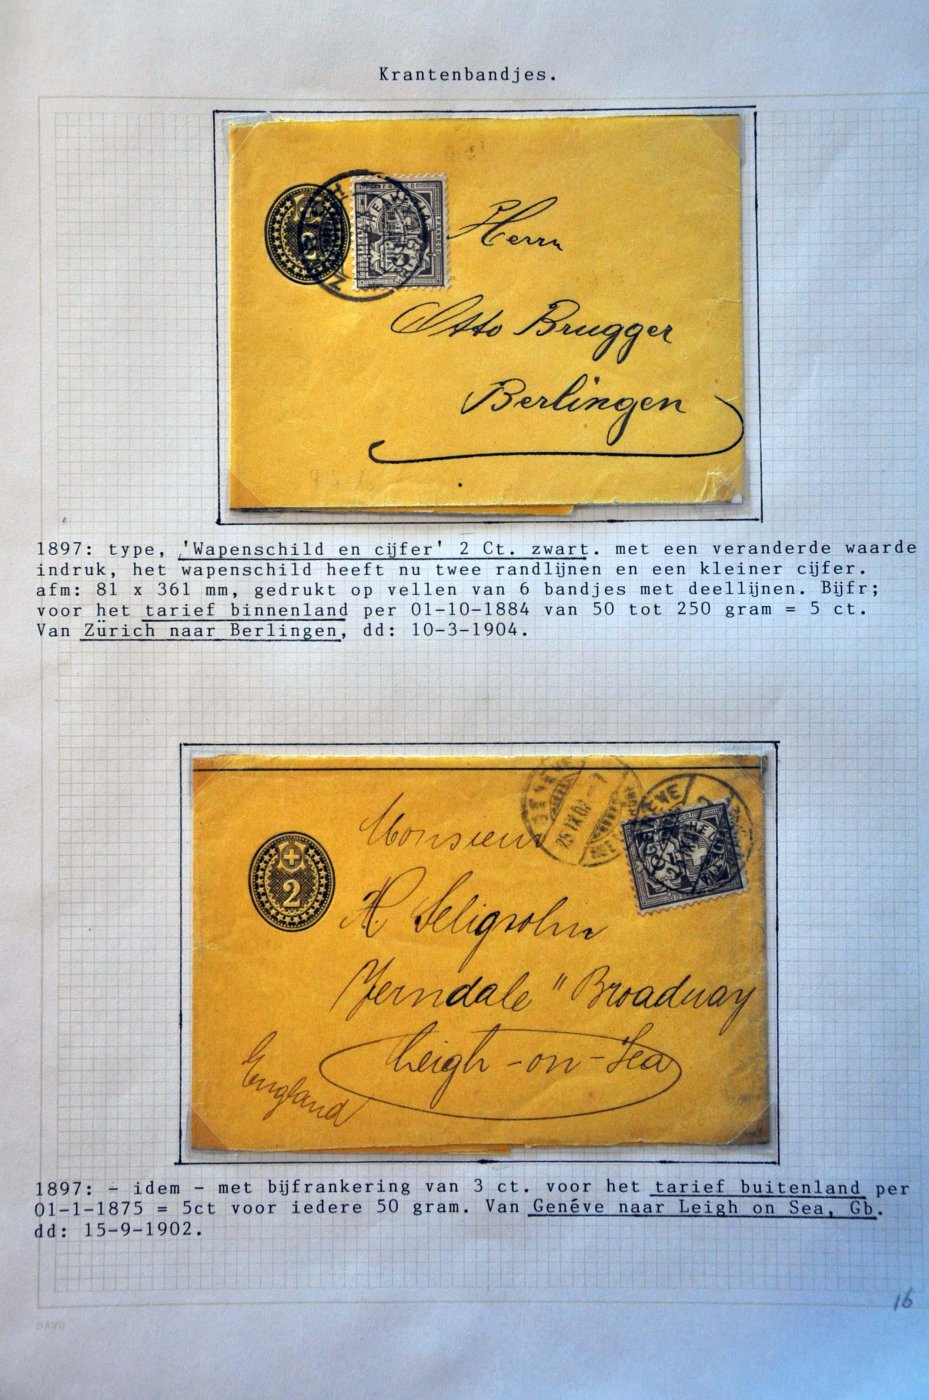 Krantenbandjes.
Herrn
Otto Brugger
Berlingen
1897: type, 'Wapenschild en cijfer' 2 Ct. zwart. met een veranderde waarde
indruk, het wapenschild heeft nu twee randlijnen en een kleiner cijfer.
afm: 81 x 361 mm, gedrukt op vellen van 6 bandjes met deellijnen. Bijfr;
voor het tarief binnenland per 01-10-1884 van 50 tot 250 gram = 5 ct.
Van Zürich naar Berlingen, dd: 10-3-1904.
2
Monsieur
A Seligsohn
"Broadway
Leigh-on-Sea
England
1897: - idem - met bijfrankering van 3 ct. voor het tarief buitenland per
01-1-1875 = 5ct voor iedere 50 gram. Van Genéve naar Leigh on Sea, Gb.
dd: 15-9-1902.
16